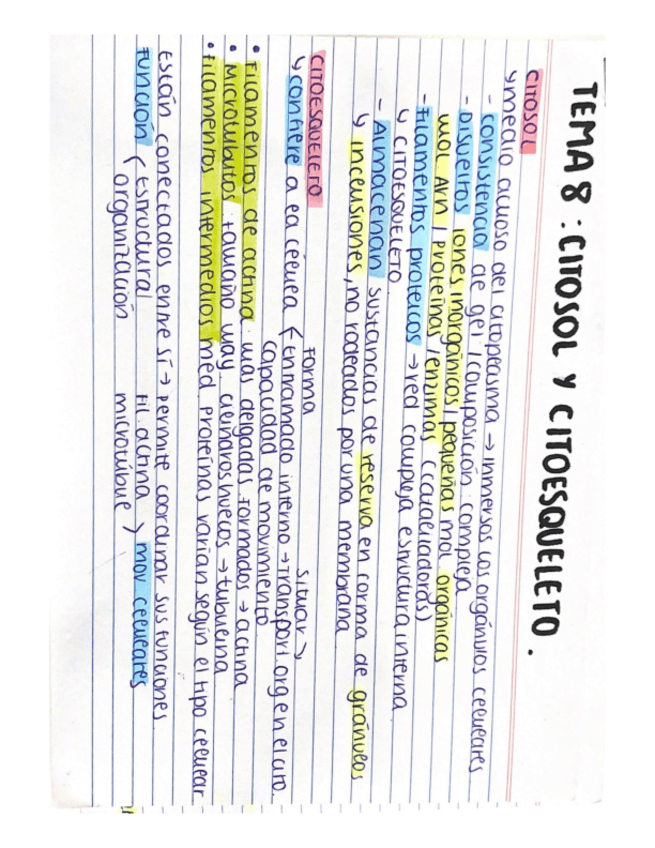 TEMA 8: CITOSOL Y CITOESQUELETO.
CITOSOL
↳ medio acuoso del citoplasma → inmersos los orgánulos celulares
- consistencia de gel / composición compleja
- Disueltos iones inorgánicos / pequeñas mol orgánicas
mol Arn / Proteinas / enzimas (catalizadords)
- Filamentos proteicos → red compleja estructura interna
↳ CITOESQUELETO
- Almacenan sustancias de reserva en forma de gránulos
↳ inclusiones, no rodeados por una membrana
CITOESQUELETO
↳ confiere a la célula < Forma
entramado interno → transport. org en el cito. situar ↘
capacidad de movimiento
• Filamentos de actina: más delgadas. Formados → actina
• Microtubulos: tamaño may. cilindros huecos → tubulina
• Filamentos intermedios med. Proteínas varían según el tipo celular
Están conectados entre sí → permite coordinar sus funciones.
Función < Estructural
organización
Fil. actina
microtúbul > mov celulares